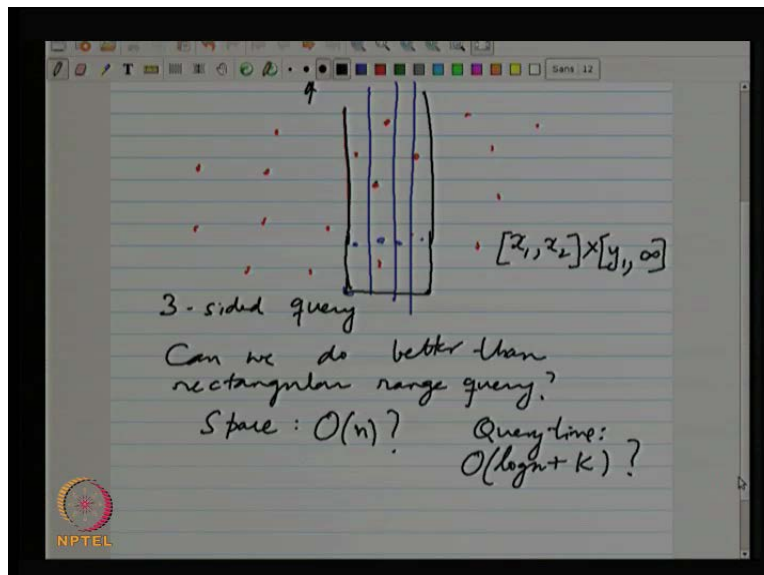 T
Sans 12
[x₁, x₂] × [y₁, ∞]
3-sided query
Can we do better than
rectangular range query?
Space : O(n) ?
Query time:
O(log n + K) ?
NPTEL